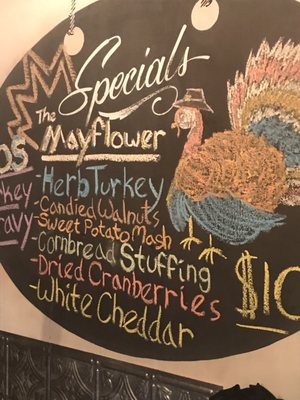 Specials
The
Mayflower
-Herb Turkey
-Candied Walnuts
-Sweet Potato Mash
-Cornbread Stuffing
-Dried Cranberries
-White Cheddar
$10